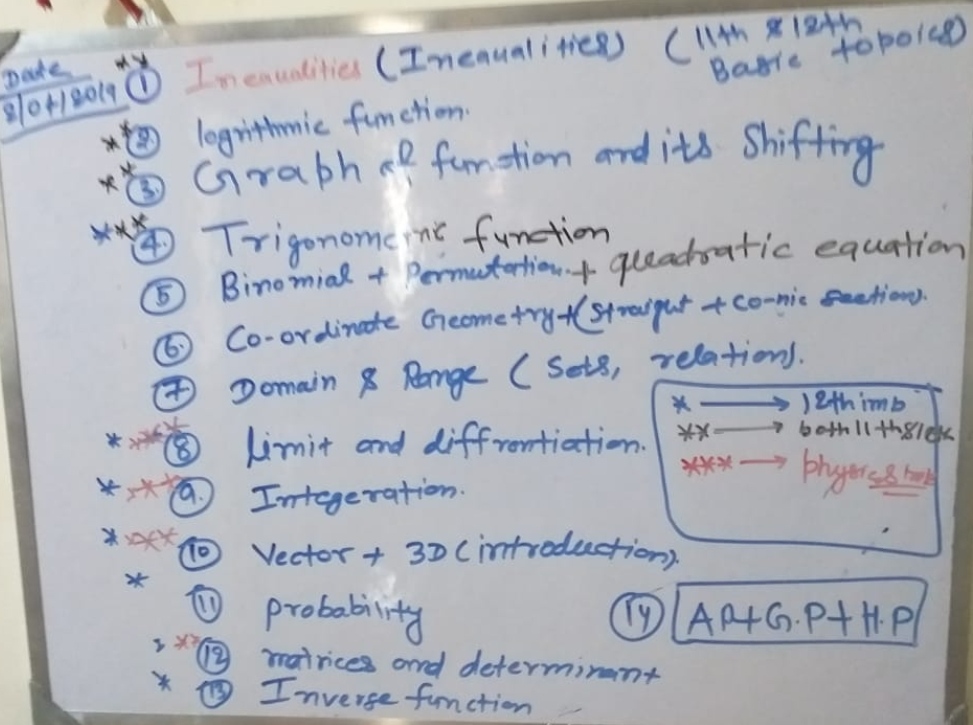 Date
① Ineaualities (Ineaualities) (11th & 12th Basic topoics)
** ② logrithmic function.
** ③ Graph of function and its Shifting
*** ④ Trigonometric function
⑤ Binomial + Permutation + queadratic equation
⑥ Co-ordinate Geometry + (Straigut + co-nic section).
⑦ Domain & Range (Sets, relation).
* *** ⑧ Limit and diffrontiation.
* *** ⑨ Integeration.
* *** ⑩ Vector + 3D (introduction).
* ⑪ probability
⑫ matrices and determinant
* ⑬ Inverse function
* → 12th imb
** → both 11th &
*** → physics
⑭ A.P+G.P+H.P